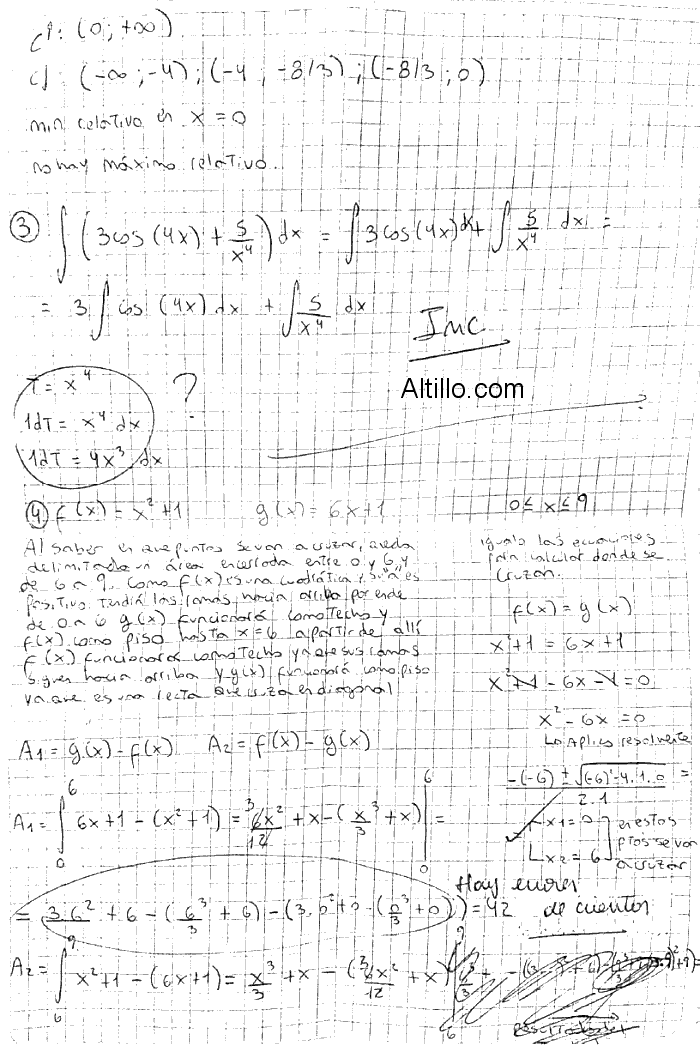 C↑: (0; +∞)
C↓: (-∞; -4); (-4; -8/3); (-8/3; 0)
min relativo en x = 0
no hay máximo relativo.
③ ∫ (3cos(4x) + 5/x⁴) dx = ∫ 3cos(4x) dx + ∫ 5/x⁴ dx =
= 3 ∫ cos (4x) dx + ∫ 5/x⁴ dx
Inc
Altillo.com
T = x⁴ ?
1dT = x⁴ dx
1dT = 4x³ dx
④ f(x) = x²+1 g(x) = 6x+1 0 ≤ x ≤ 9
Al saber en que puntos se van a cruzar, queda
delimitada un área encerrada entre 0 y 6, y
de 6 a 9. Como f(x) es una cuadrática y su a es
positivo tendrá las ramas hacia arriba por ende
de 0 a 6 g(x) funcionará como techo y
f(x) como piso hasta x=6 a partir de allí
f(x) funcionará como techo ya que sus ramas
siguen hacia arriba y g(x) funcionará como piso
ya que es una recta que cruza en diagonal
igualo las ecuaciones
para calcular donde se
cruzan.
f(x) = g(x)
x²+1 = 6x+1
x²+1 - 6x - 1 = 0
x² - 6x = 0
Lo aplico resolvente
-(-6) ± √(-6)²-4.1.0 / 2.1 =
x1 = 0
x2 = 6
en estos
ptos se van
a cruzar
A1 = g(x) - f(x) A2 = f(x) - g(x)
A1 = ∫₀⁶ 6x+1 - (x²+1) = 3 6x²/12 + x - (x³/3 + x) |₀⁶ =
= 3.6² + 6 - (6³/3 + 6) - (3.0² + 0 - (0³/3 + 0)) = 42
Hay errores
de cuentas
A2 = ∫₆⁹ x²+1 - (6x+1) = x³/3 + x - (3 6x²/12 + x) |₆⁹